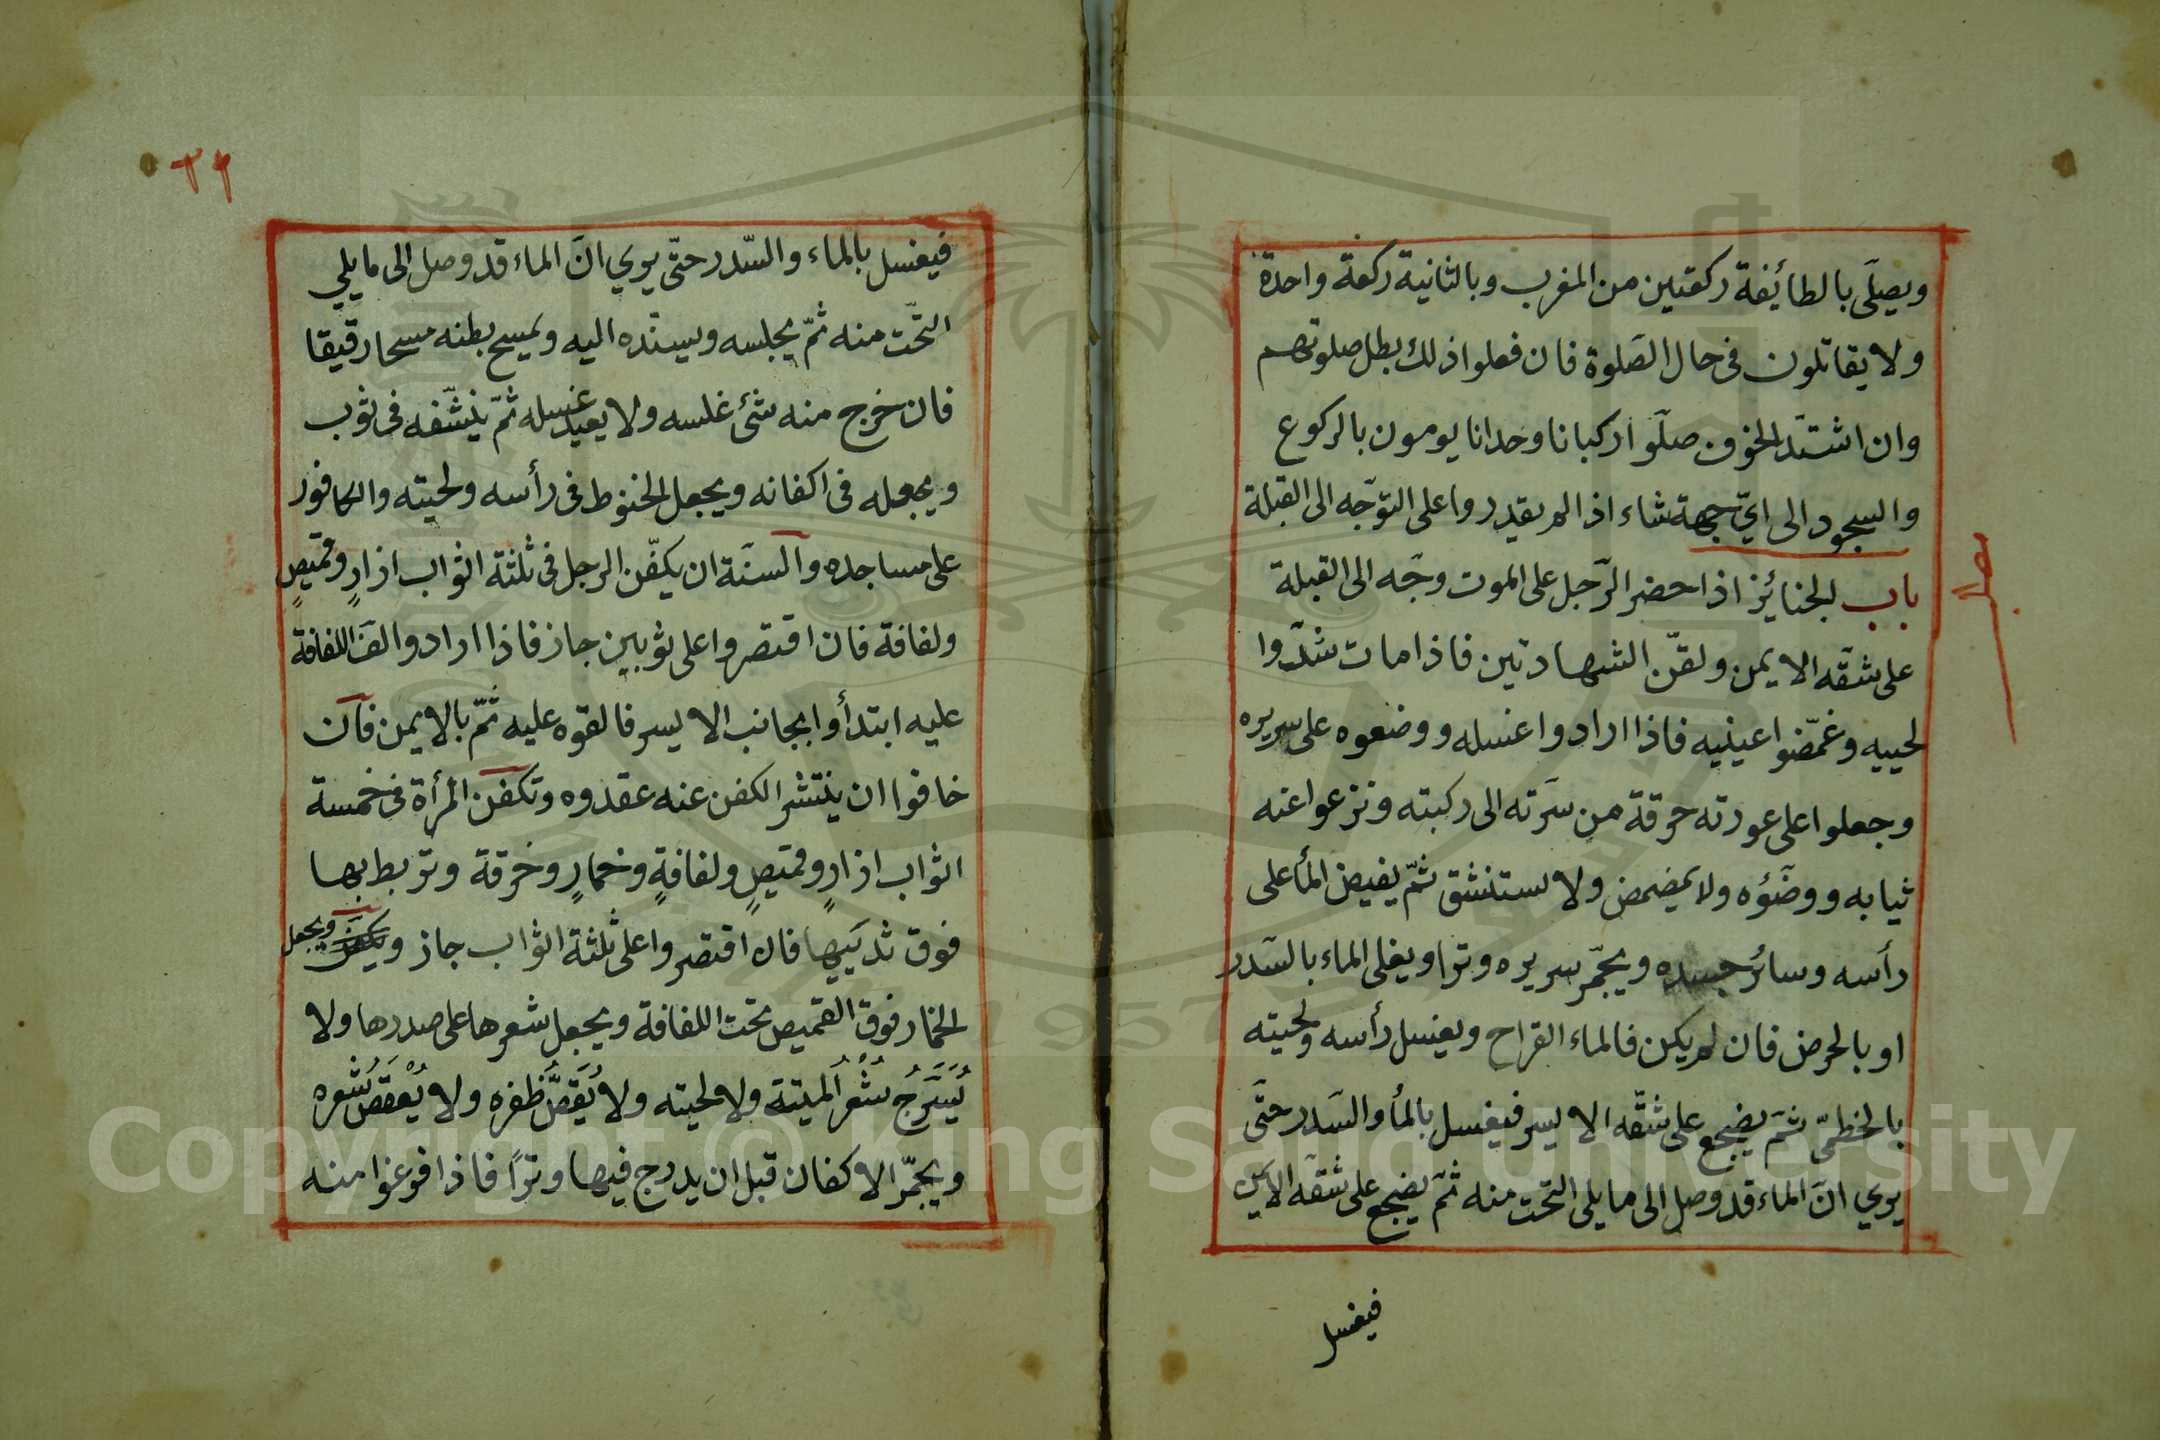 ويصلّى بالطائفة ركعتين من المغرب وبالثانية ركعة واحدة
ولا يقاتلون فى حال الصّلوة فان فعلوا ذلك بطل صلوتهم
وان اشتدّ الخوف صلّوا ركبانا وحدانا يومون بالركوع
والسجود الى ايّ جهة شاء اذا لم يقدروا على التوّجه الى القبلة
باب الجنائز اذا حضر الرّجل على الموت وجّه الى القبلة
على شقّه الايمن ولقّن الشهادتين فاذا مات شدّوا
لحييه وغمّضوا عينيه فاذا ارادوا غسله ووضعوه على سريره
وجعلوا على عورته خرقة من سرّته الى ركبته ونزعوا عنه
ثيابه ووضّؤه ولا يمضمض ولا يستنشق ثمّ يفيض المأ على
رأسه وسائر جسده ويجمّر سريره وترا ويغلى الماء بالسّدر
او بالحرض فان لم يكن فالماء القراح ويغسل رأسه ولحيته
بالخطمىّ ثمّ يضجع على شقّه الايسر فيغسل بالمأ والسّدر حتّى
يري انّ الماء قد وصل الى ما يلى التحت منه ثمّ يضجع على شقّه الايمن
فيغسل
٢٩
فيغسل بالماء والسّدر حتّى يري انّ الماء قد وصل الى ما يلي
التّحت منه ثمّ يجلسه ويسنّده اليه ويمسح بطنه مسحا رقيقا
فان خرج منه شئ غلسه ولا يعيد غسله ثمّ ينشّفه فى ثوب
ويجعله فى اكفانه ويجعل الحنوط فى رأسه ولحيته والكافور
على مساجده والسنّة ان يكفّن الرجل فى ثلثة اثواب ازارٍ وقميصٍ
ولفافة فان اقتصروا على ثوبين جاز فاذا ارادوا لفّ اللفافة
عليه ابتدأوا بجانب الايسر فالقوه عليه ثمّ بالايمن فان
خافوا ان ينتشر الكفن عنه عقدوه وتكفن المرأة فى خمسة
اثواب ازارٍ وقميصٍ ولفافةٍ وخمارٍ وخرقة وتربط بها
فوق ثدييها فان اقتصروا على ثلثة اثواب جاز ويجعل
الخمار فوق القميص تحت اللفافة ويجعل شعرها على صدرها ولا
يُسَرَّجُ شَعْرُ الميتة ولا لحيته ولا يُقَصُّ ظفره ولا يُعْقَصُ شَعره
ويجمّر الاكفان قبل ان يدرج فيها وتراً فاذا فرغوا منه
Copyright © King Saud University
1957